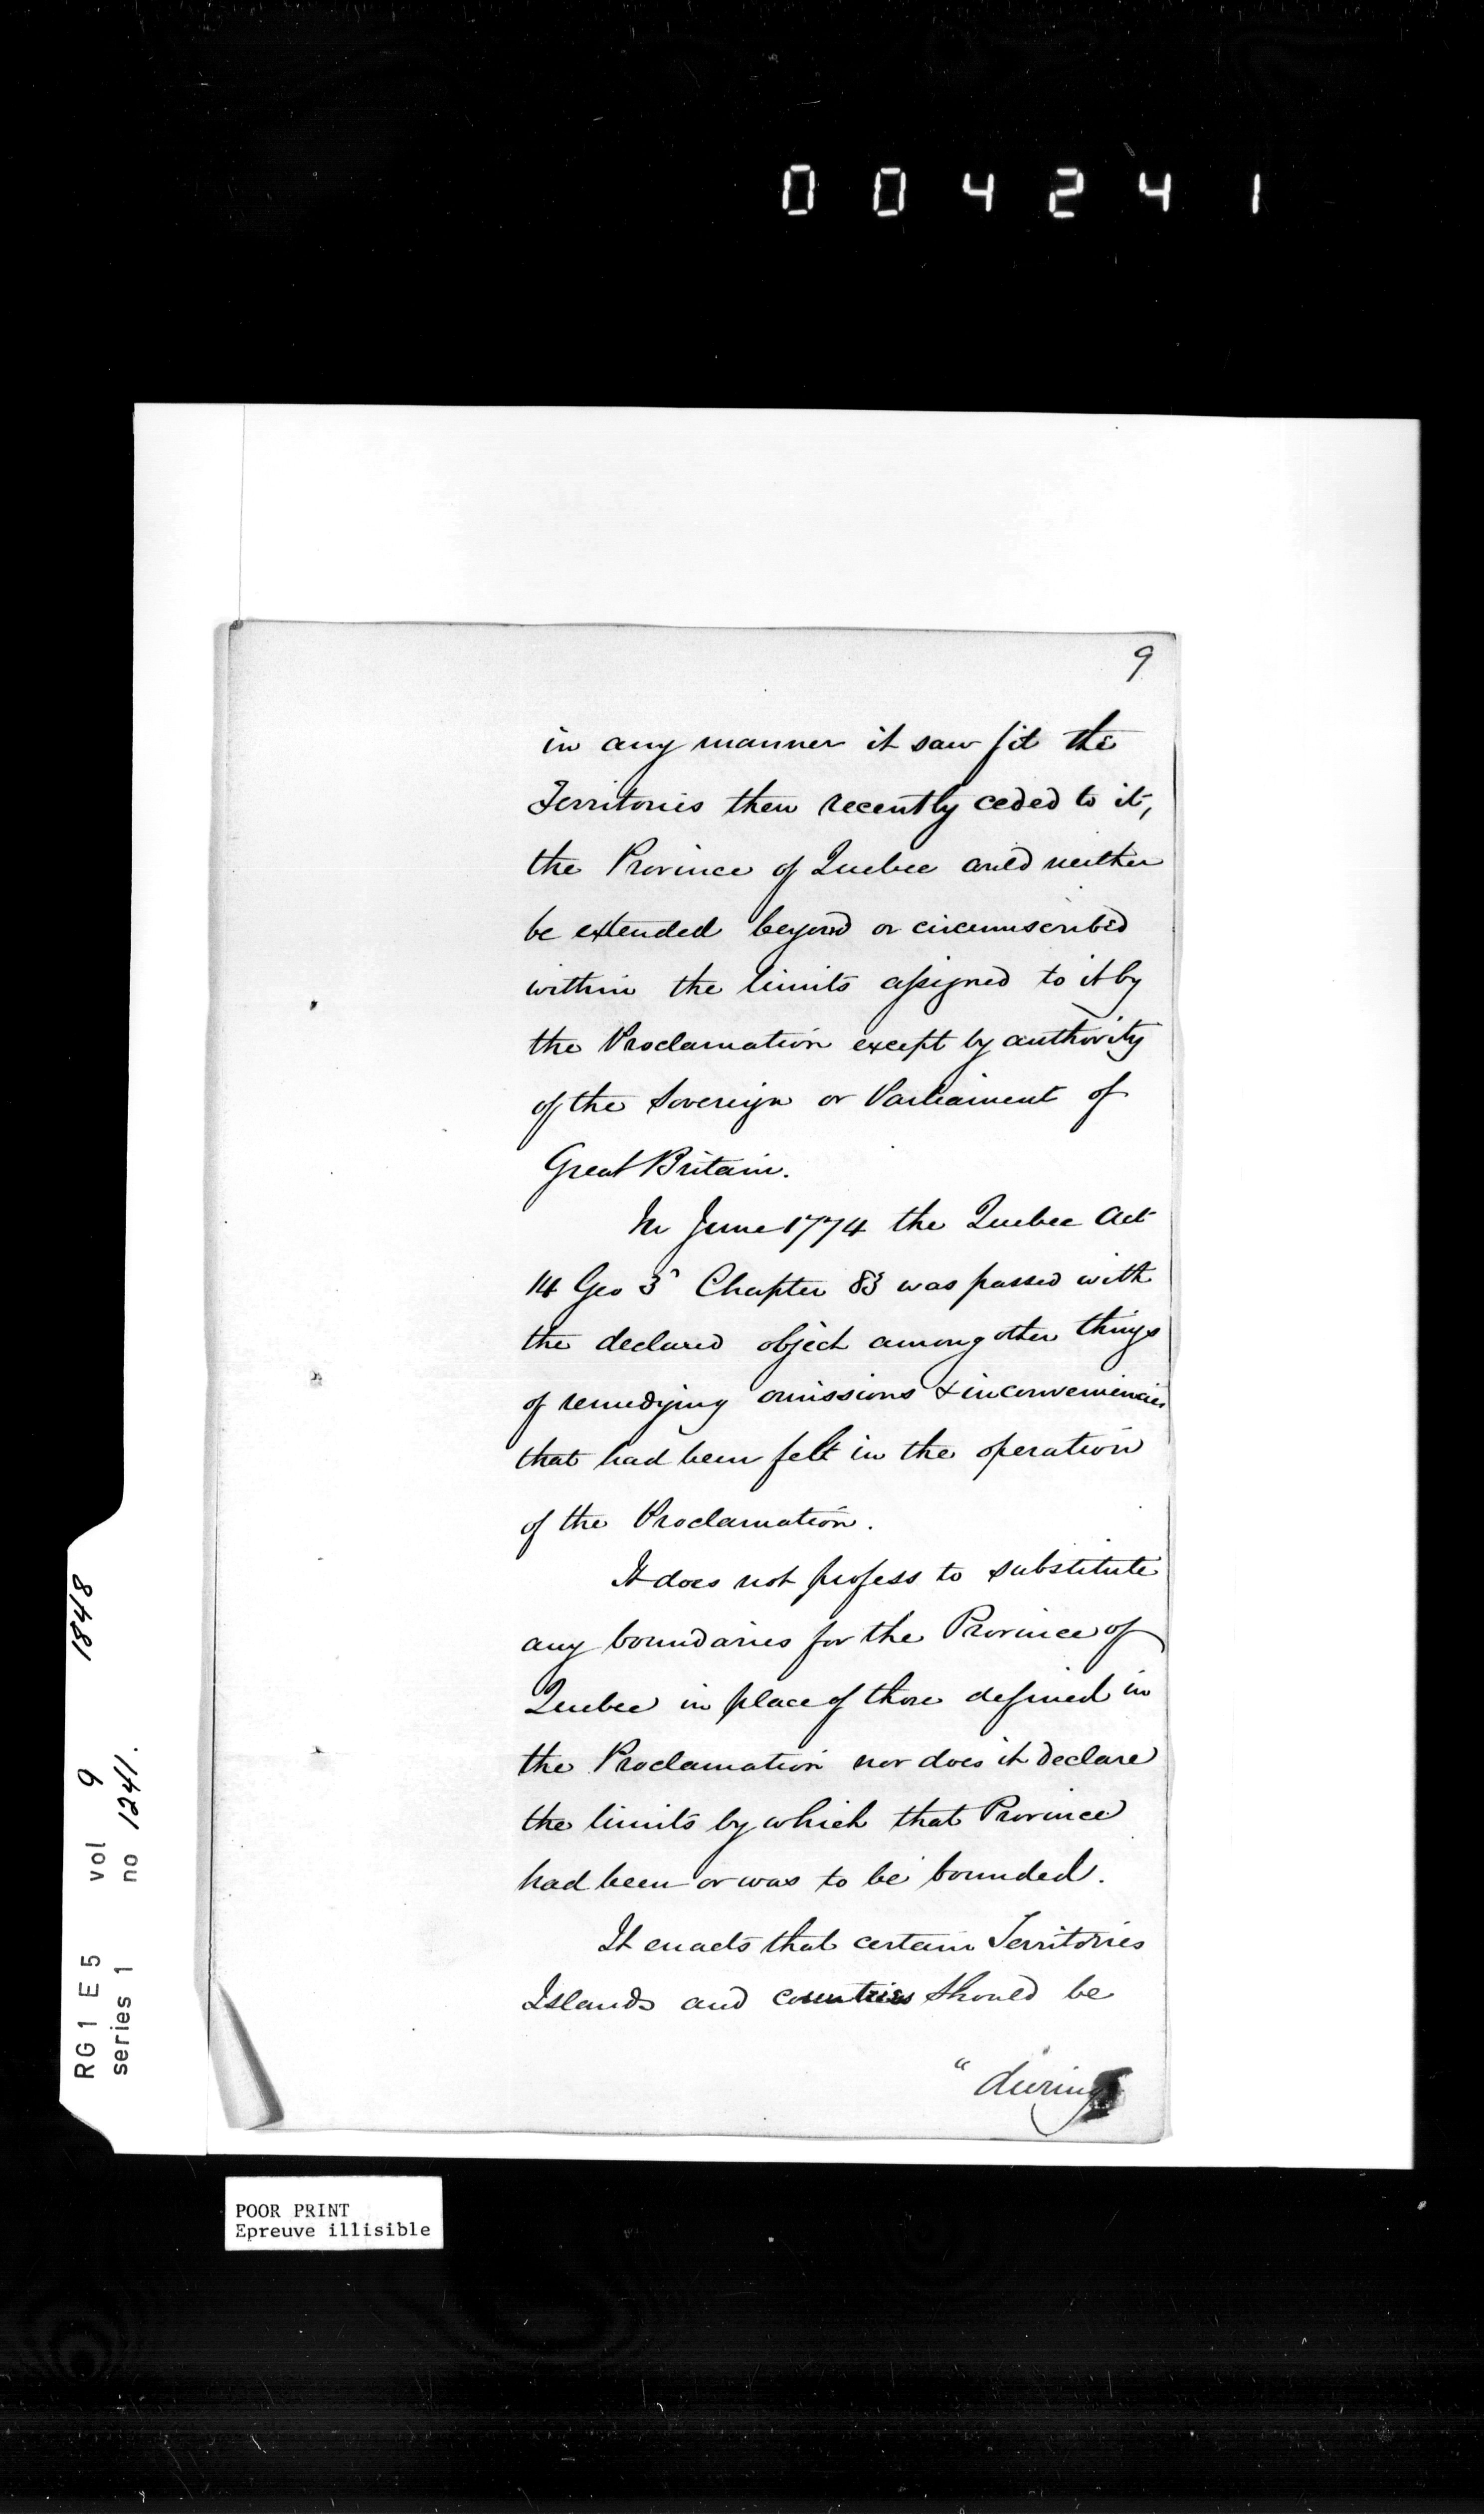 004241
9
in any manner it saw fit the
Territories then recently ceded to it,
the Province of Quebec could neither
be extended beyond or circumscribed
within the limits assigned to it by
the Proclamation except by authority
of the Sovereign or Parliament of
Great Britain.
In June 1774 the Quebec Act
14 Geo 3d Chapter 83 was passed with
the declared object among other things
of remedying omissions & inconveniencies
that had been felt in the operation
of the Proclamation.
It does not profess to substitute
any boundaries for the Province of
Quebec in place of those defined in
the Proclamation nor does it declare
the limits by which that Province
had been or was to be bounded.
It enacts that certain Territories
Islands and countries should be
"during
RG 1 E 5 vol 9 1848
series 1 no 1241.
POOR PRINT
Epreuve illisible